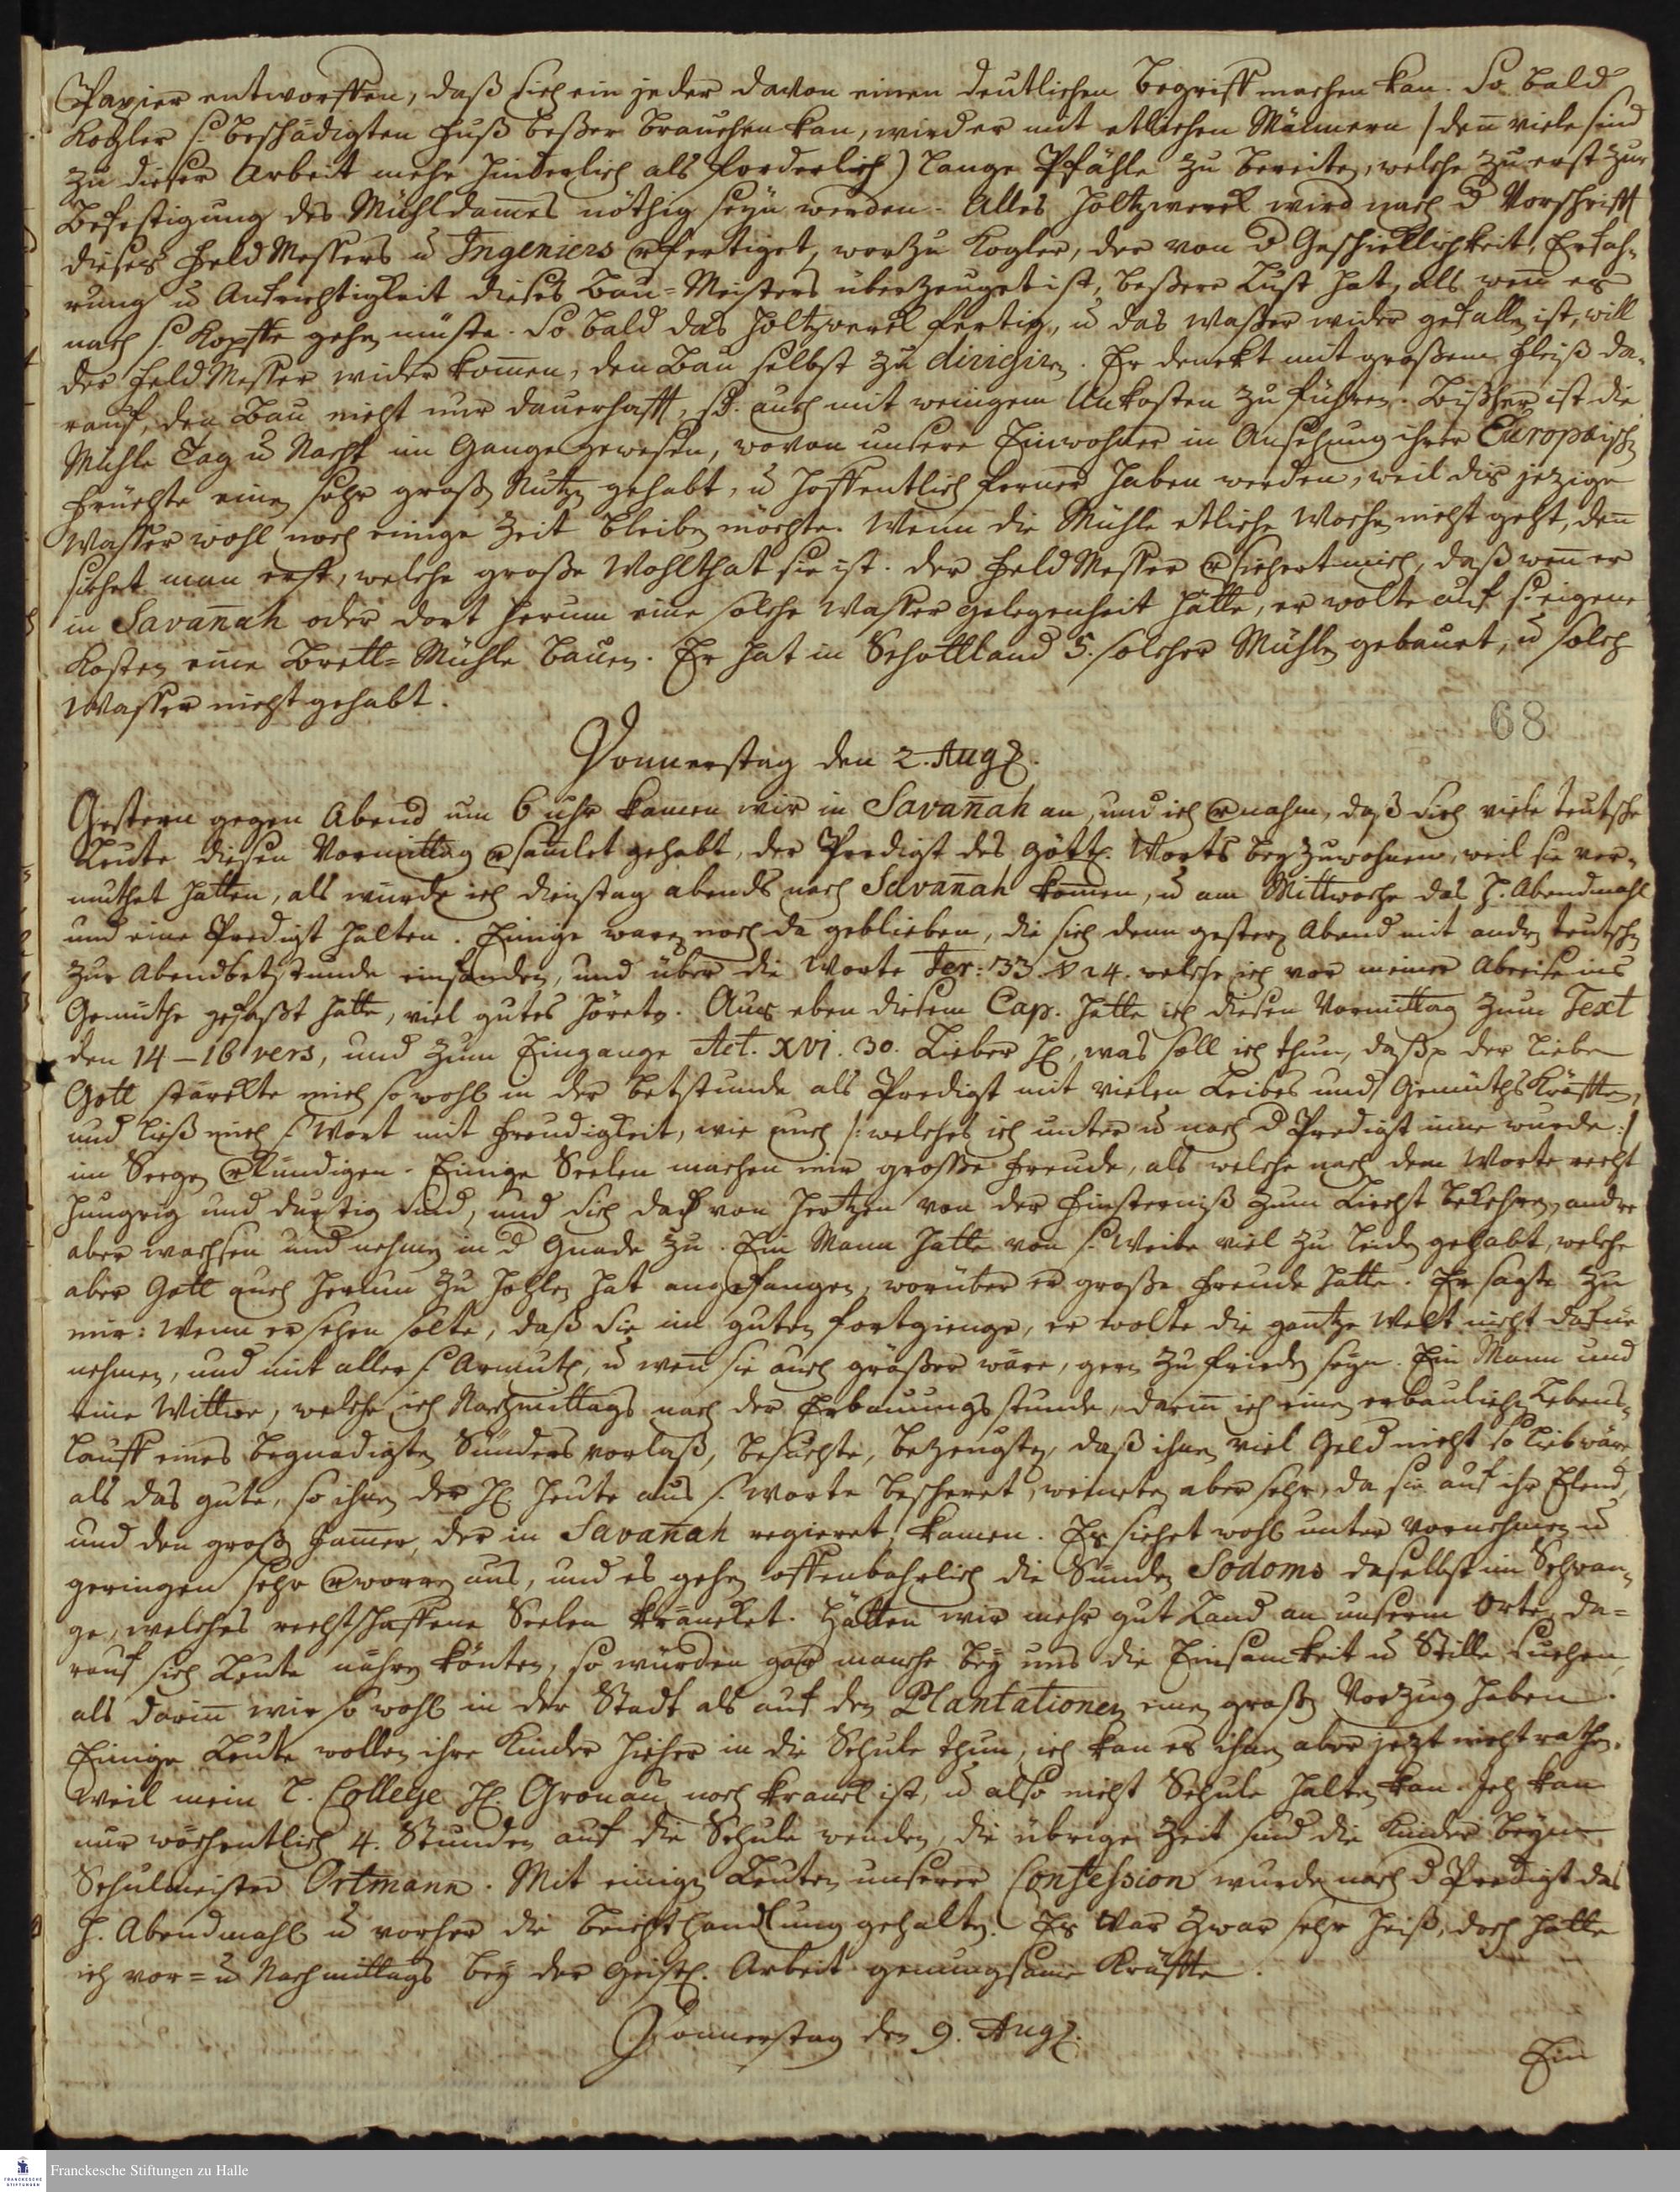 Papier entworffen, daß sich ein jeder davon einen deutlichen Begriff machen kan. So bald
Kogler s. beschädigten Fuß beßer brauchen kan, wird er mit etlichen Männern /den̅ viele sind
zu dieser Arbeit mehr hinderlich als forderlich) lange Pfähle zu bereiten, welche zu erst zur
Befestigung des Mühldam̅es nöthig seyn werden. Alles Holtzwerck wird nach d Vorschrifft
dieses FeldMessers u Ingeniers verfertiget, worzu Kogler, der von d Geschicklichkeit, Erfah-
rung u Aufrichtigkeit dieses Bau=Meisters überzeuget ist, beßere Lust hat, als wen̅ er
nach s. Kopffe gehen müste. So bald das Holtzwerck fertig, u das Waßer wider gefallen ist, will
der FeldMesser wider kom̅en, den Bau selbst zu dirigiren. Er denckt mit großem Fleiß da-
rauf, den Bau nicht nur dauerhafft, sd. auch mit wenigem Unkosten zu führen. Bißher ist die
Mühle Tag u Nacht im Gange gewesen, wovon unsere Einwohner in Ansehung ihrer Europäisch
Früchte einen sehr großen Nutzen gehabt, u hoffentlich ferner haben werden, weil dis jezige
Wasser wohl noch einige Zeit bleiben möchte. Wenn die Mühle etliche Wochen nicht geht, den̅
siehet man erst, welche große Wohlthat sie ist. Der FeldMesser versichert mich, daß wen̅ er
in Savan̅ah oder dort herum eine solche Wasser gelegenheit hätte, er wolte auf s. eigene
Kosten eine Brett=Mühle bauen. Er hat in Schottland 5. solcher Mühlen gebauet, u solch
Wasser nicht gehabt.
68
Donnerstag den 2. Aug.
Gestern gegen Abend um 6 uhr kamen wir in Savan̅ah an, und ich vernahm, daß sich viele teutsche
Leute diesen Vormittag versam̅let gehabt, der Predigt des göttl. Worts beyzuwohnen, weil sie ver-
muthet hatten, als würde ich dienstag abends nach Savan̅ah kom̅en, u am Mittwoche das H. Abendmahl
und eine Predigt halten. Einige waren noch da geblieben, die sich denn gestern Abend mit andern teutschen
zur Abendbetstunde einfanden, und über die Worte Jer: 33. V 24. welche ich vor meiner Abreise ins
Gemüthe gefaßt hatte, viel gutes höreten. Aus eben diesem Cap. hatte ich diesen Vormittag zum Text
den 14–16 vers, und zum Eingange Act. XVI. 30. Lieber H, was soll ich thun, daß p der liebe
Gott stärckte mich so wohl in der Betstunde als Predigt mit vielen Leibes und GemüthsKräfften,
und ließ mich s. Wort mit Freudigkeit, wie auch /: welches ich unter u nach d Predigt inne wurde:/
im Seegen verkündigen. Einige Seelen machen mir große Freude, als welche nach dem Worte recht
hungrig und durstig sind, und sich doch von Hertzen von der Finsterniß zum Liecht bekehren, andre
aber wachsen und nehmen in d Gnade zu. Ein Mann hatte von s. Weibe viel zu leiden gehabt, welche
aber Gott auch herum zu hohlen hat angefangen, worüber er große Freude hatte. Er sagte zu
mir: Wenn er sehen solte, daß sie im guten fortgienge, er wolte die gantze Welt nicht dafür
nehmen, und mit aller s. Armuth, u wen̅ sie auch größer wäre, gern zu frieden seyn. Ein Mann und
eine Wittwe, welche ich Nachmittags nach der Erbauungsstunde, darin̅ ich einen erbaulichen Lebens-
Lauff eines begnadigten Sünders vorlaß, besuchte, bezeugten, daß ihnen viel Geld nicht so lieb wäre
als das gute, so ihnen der H. heute aus s. Worte bescheret, weineten aber sehr, da sie auf ihr Elend,
und den großen Jam̅er, der in Savan̅ah regieret, kamen. Es siehet wohl unter Vornehmen u
geringen sehr verworren aus, und es gehen offenbahrlich die Sünden Sodoms daselbst im Schwan-
ge, welches rechtschaffene Seelen kräncket. Hätten wir mehr gut Land an unserm Orte, da=
rauf sich Leute nähren könten, so würden gar manche bey uns die Einsamkeit u Stille suchen,
als darin̅ wir so wohl in der Stadt als auf den Plantationen einen großen Vorzug haben.
Einige Leute wollen ihre Kinder hieher in die Schule thun, ich kan es ihnen aber jezt nicht rathen,
weil mein l. College H. Gronau noch kranck ist, u also nicht Schule halten kan. Ich kan
nur wöchentlich 4. Stunden auf die Schule wenden, die übrige Zeit sind die Kinder beym
Schulmeister Ortmann. Mit einigen Leuten unserer Confession wurde nach d Predigt das
H. Abendmahl u vorher die Beichthandlung gehalten. Es war zwar sehr heiß, doch hatte
ich vor= u Nachmittags bey der geistl. Arbeit genungsame Kräffte.
Donnerstag den 9. Aug.
Ein
Franckesche Stiftungen zu Halle
FRANCKESCHE STIFTUNGEN